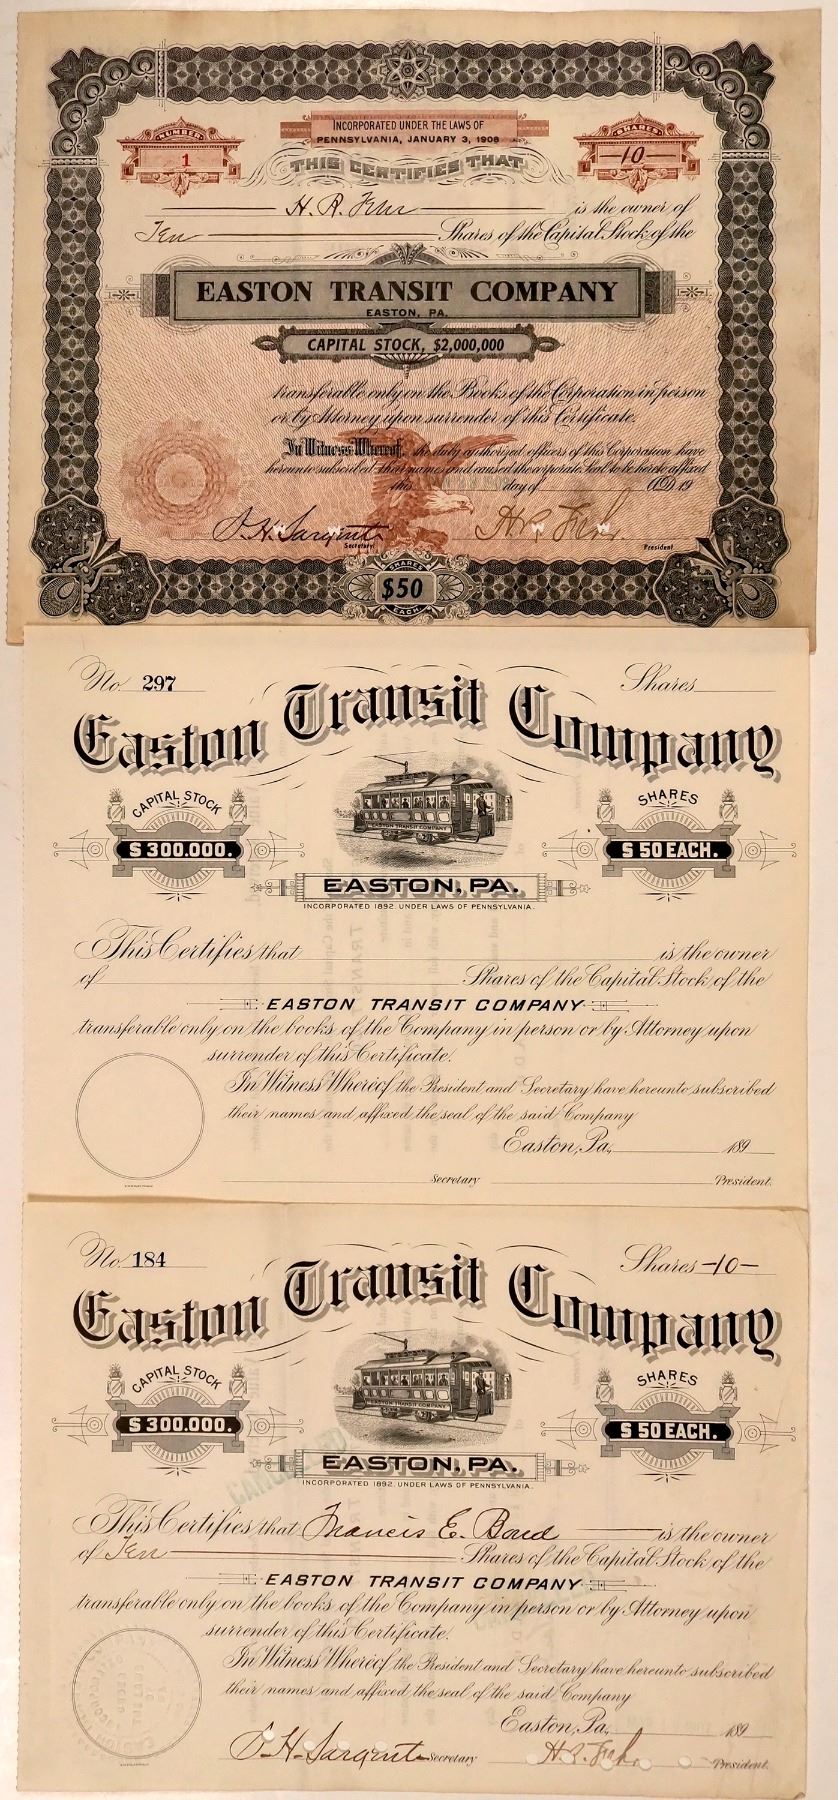 INCORPORATED UNDER THE LAWS OF
PENNSYLVANIA, JANUARY 3, 1908
NUMBER
1
SHARES
10
THIS CERTIFIES THAT
H. R. Fehr is the owner of
Ten Shares of the Capital Stock of the
EASTON TRANSIT COMPANY
EASTON, PA.
CAPITAL STOCK, $2,000,000
transferable only on the Books of the Corporation in person
or by Attorney upon surrender of this Certificate.
In Witness Whereof, the duly authorized officers of this Corporation have
hereunto subscribed their names and caused the corporate Seal to be hereto affixed
this day of A.D. 19
S. H. Sargent H. R. Fehr
Secretary President
SHARES
$50
EACH
No. 297 Shares
Easton Transit Company
CAPITAL STOCK
$300.000.
EASTON TRANSIT COMPANY
SHARES
$50 EACH.
EASTON, PA.
INCORPORATED 1892. UNDER LAWS OF PENNSYLVANIA.
This Certifies that is the owner
of Shares of the Capital Stock of the
EASTON TRANSIT COMPANY
transferable only on the books of the Company in person or by Attorney upon
surrender of this Certificate.
In Witness Whereof the President and Secretary have hereunto subscribed
their names and affixed the seal of the said Company
Easton, Pa. 189
Secretary President.
No. 184 Shares -10-
Easton Transit Company
CAPITAL STOCK
$300.000.
EASTON TRANSIT COMPANY
SHARES
$50 EACH.
EASTON, PA.
INCORPORATED 1892. UNDER LAWS OF PENNSYLVANIA.
CANCELLED
This Certifies that Francis E. Bond is the owner
of Ten Shares of the Capital Stock of the
EASTON TRANSIT COMPANY
transferable only on the books of the Company in person or by Attorney upon
surrender of this Certificate.
In Witness Whereof the President and Secretary have hereunto subscribed
their names and affixed the seal of the said Company
Easton, Pa. 189
S. H. Sargent Secretary H. R. Fehr President.